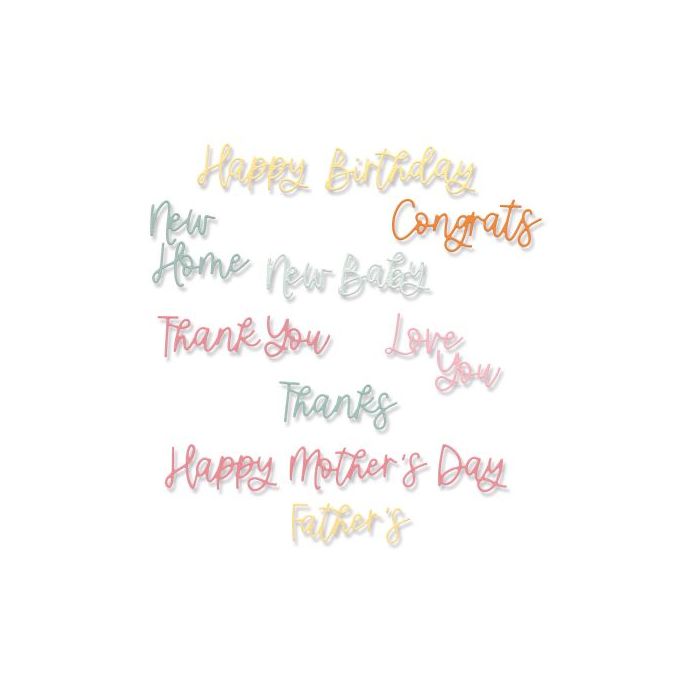 Happy Birthday
New
Home
Congrats
New Baby
Thank You
Love
You
Thanks
Happy Mother's Day
Father's